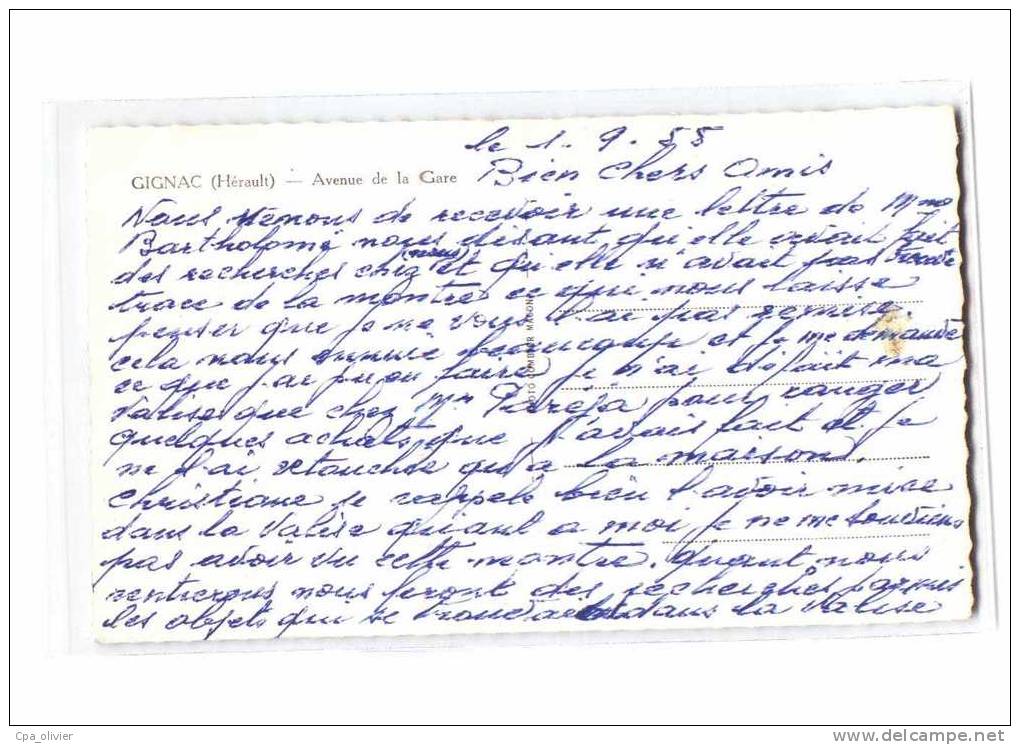 le 1. 9. 55
GIGNAC (Hérault) — Avenue de la Gare
Bien chers amis
Nous venons de recevoir une lettre de Mme
Bartholomé nous disant qu'elle avait fait
des recherches chez (nous) et qu'elle n'avait pas trouvé
trace de la montre ce qui nous laisse
penser que je ne vous l'ai pas remise.
cela nous ennuie beaucoup et je me demande
ce que j'ai pu en faire. Je n'ai défait ma
valise que chez Mme Pareja pour ranger
quelques achats que j'avais fait et je
ne l'ai retouchée qu'a la maison.
Christiane se rappele bien l'avoir mise
dans la valise quant a moi je ne me souviens
pas avoir vu cette montre. quant nous
rentrerons nous feront des recherches parmis
les objets qui se dans la valise
Cpa_olivier
http://www.delcampe.net